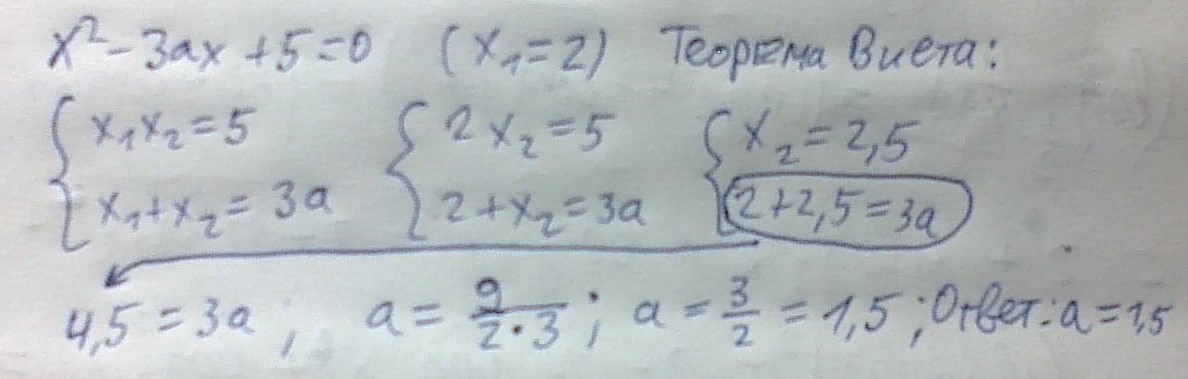 x² - 3ax + 5 = 0 (x₁ = 2) Теорема Виета:
{ x₁x₂ = 5 { 2x₂ = 5 { x₂ = 2,5
x₁ + x₂ = 3a 2 + x₂ = 3a 2 + 2,5 = 3a
4,5 = 3a ; a = 9/(2·3) ; a = 3/2 = 1,5 ; Ответ: a = 1,5